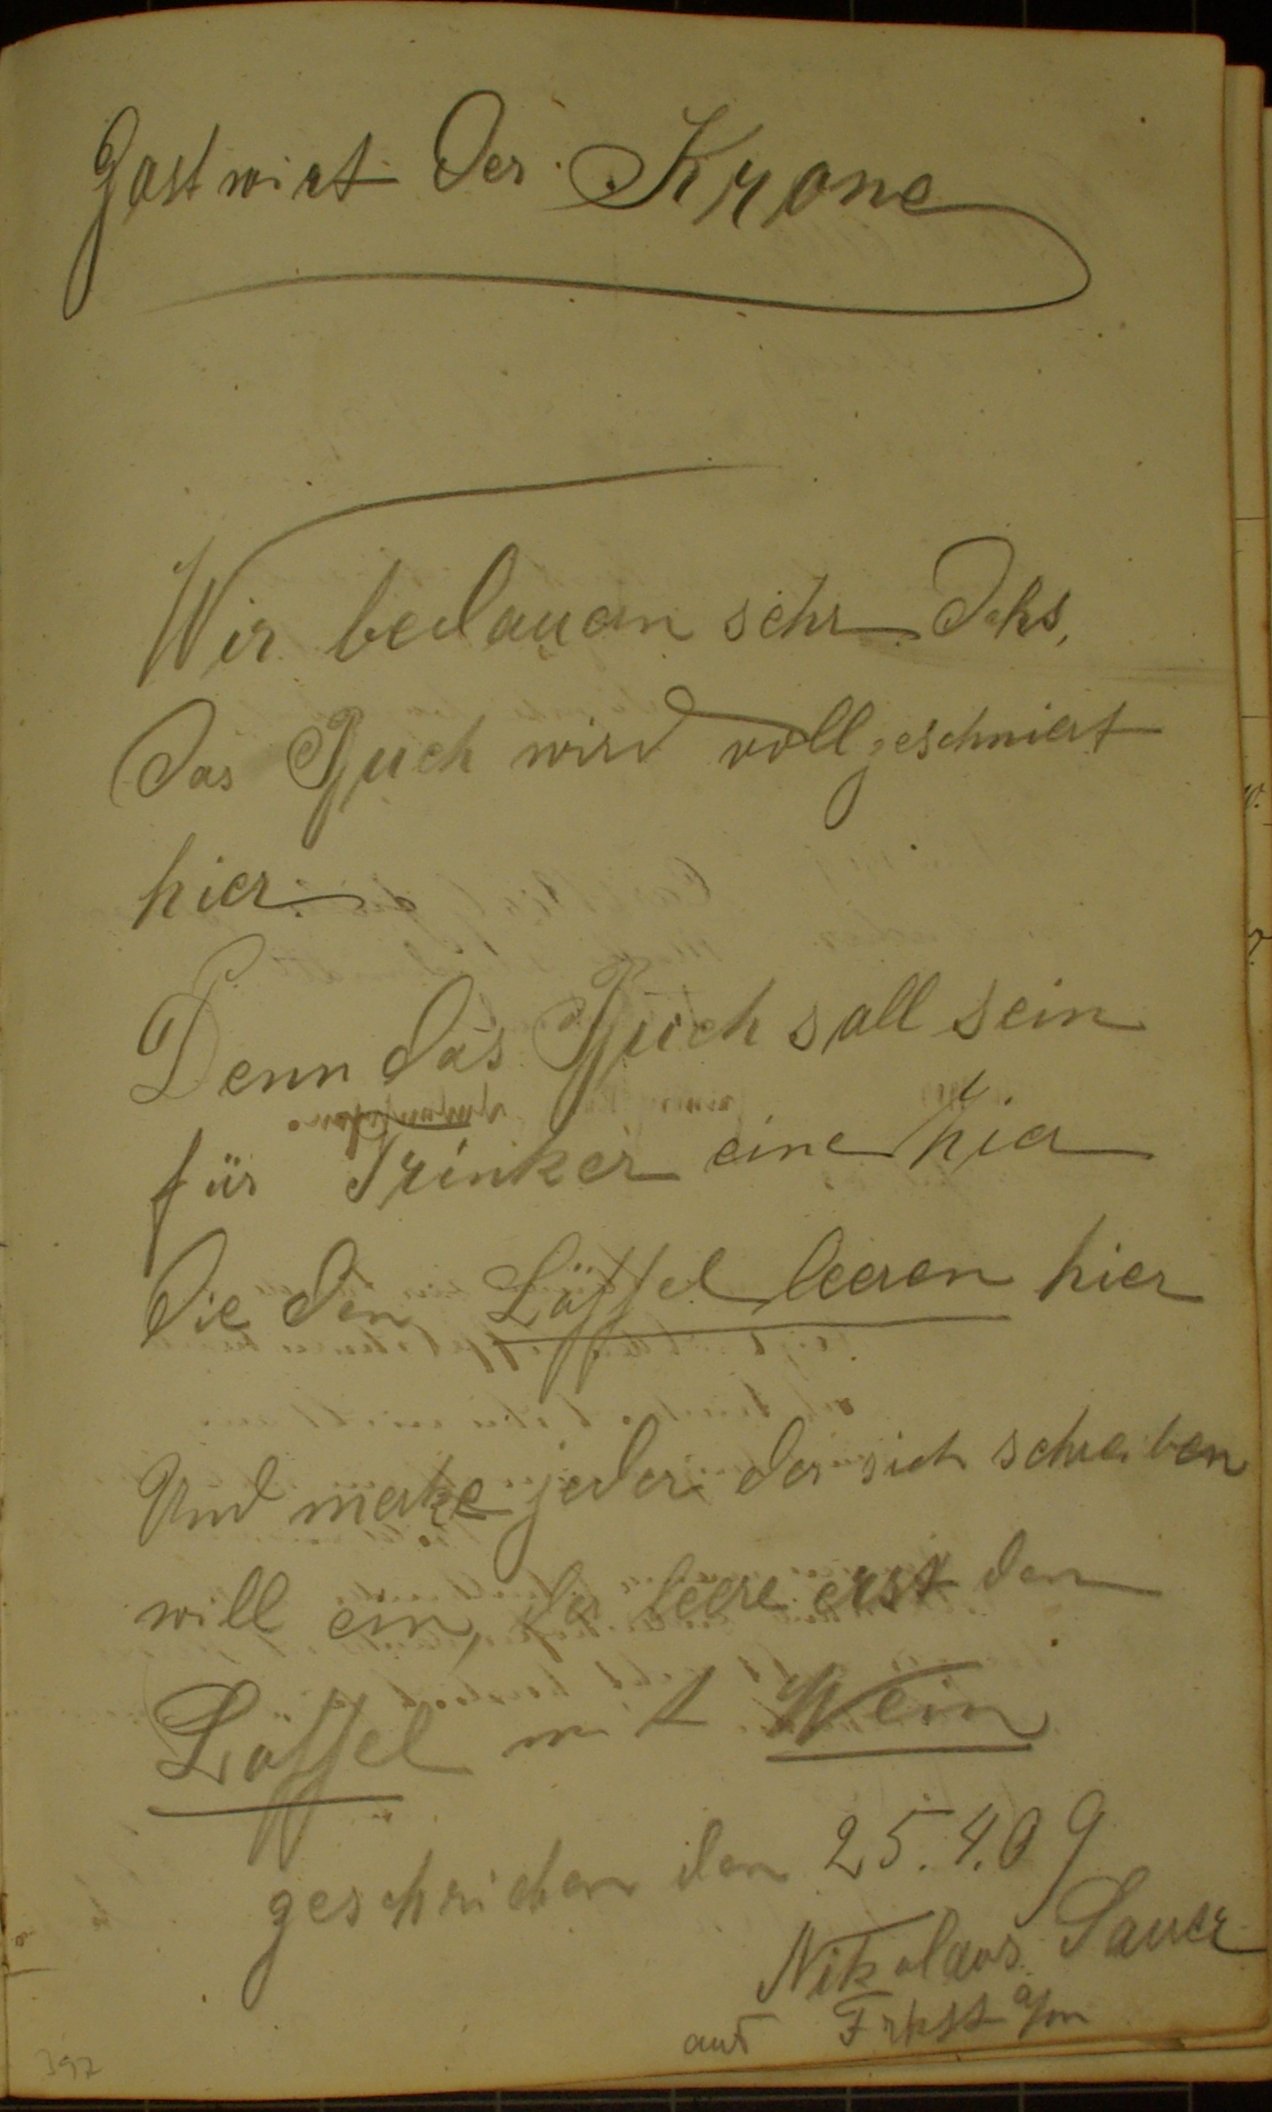 Gastwirt der Krone
Wir bedauern sehr dahs,
das Buch wird vollgeschmiert
hier.
Denn das Buch soll sein
für Trinker eine hier
die den Löffel leeren hier
Und merke jeder der sich schreiben
will ein, der leere erst den
Löffel mit Wein
geschrieben den 25.4.09
Nikolaus Sauer
aus Frkft a/m
397